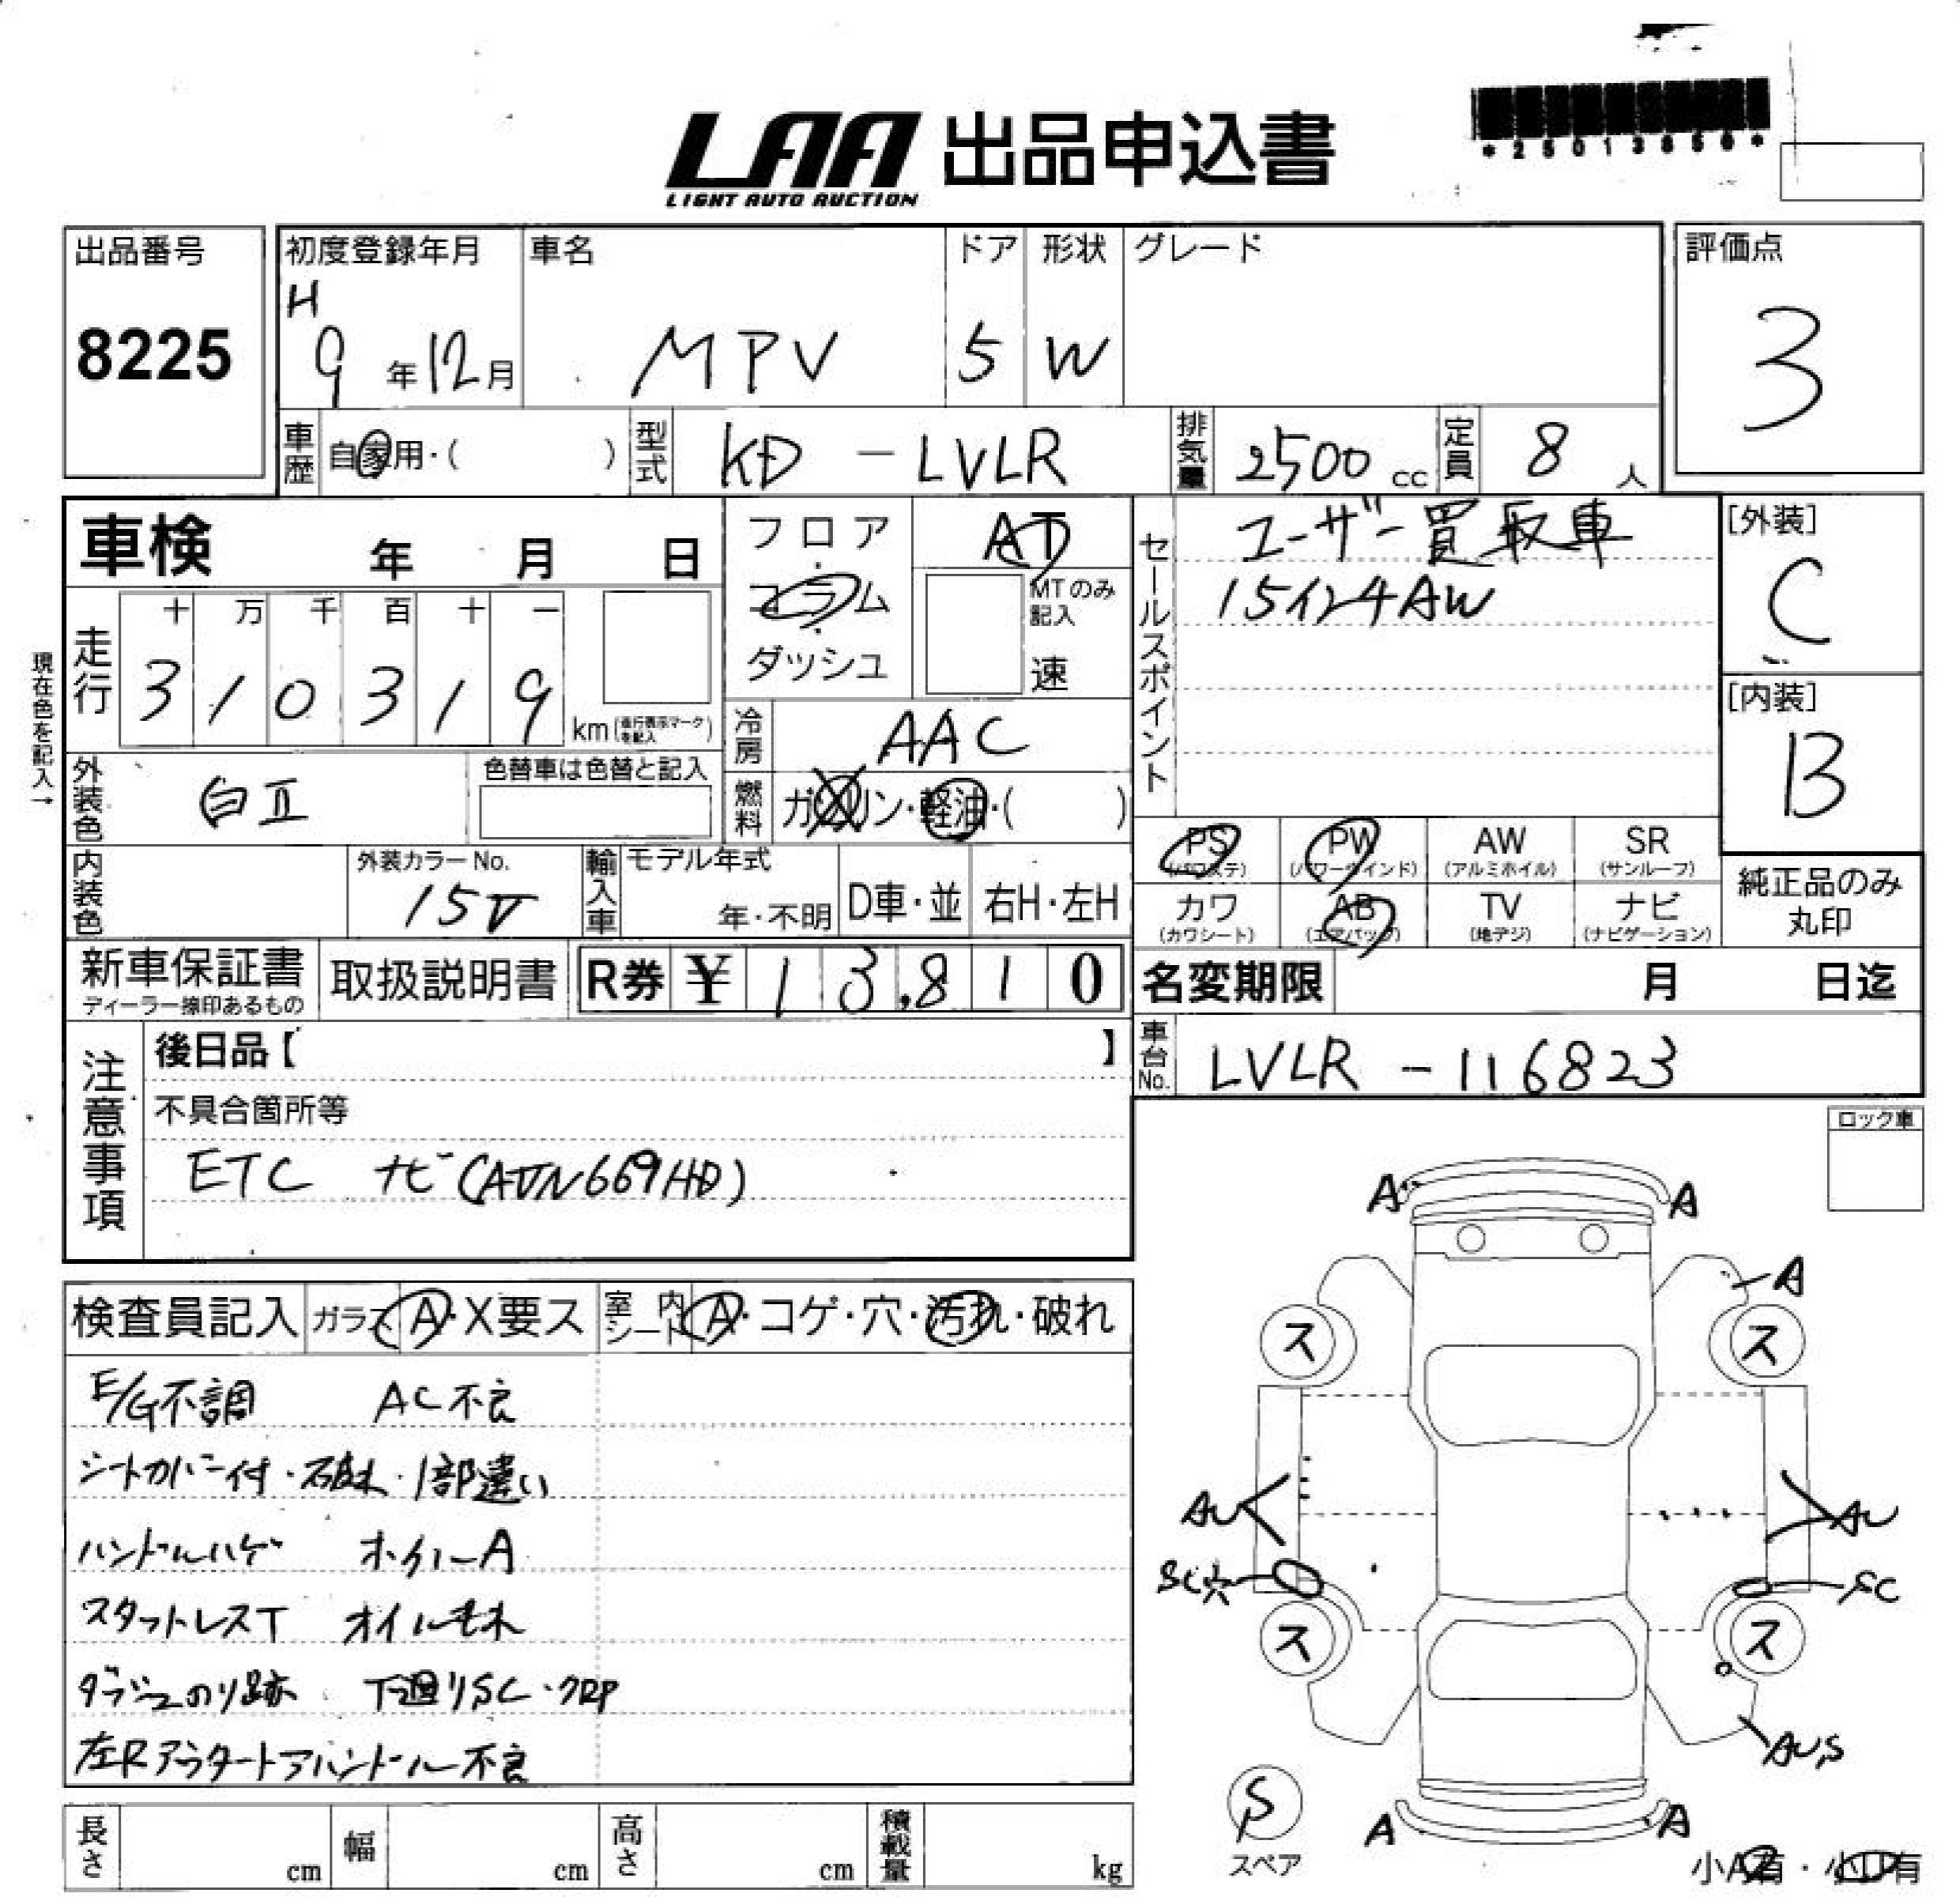 LAA 出品申込書
LIGHT AUTO AUCTION
*25013850*
出品番号
8225
初度登録年月
H
9年12月
車名
MPV
ドア
5
形状
W
グレード
評価点
3
車歴
自家用・( )
型式
KD-LVLR
排気量
2500cc
定員
8人
車検 年 月 日
フロア・コラム・ダッシュ
AT
MTのみ記入
速
セールスポイント
ユーザー買取車
15インチAW
[外装]
C
[内装]
B
現在色を記入→
走行
十 万 千 百 十 一
3 1 0 3 1 9
km(走行表示マークを記入)
冷房
AAC
外装色
白Ⅱ
色替車は色替と記入
燃料
ガソリン・軽油・( )
PS
(パワステ)
PW
(パワーウインド)
AW
(アルミホイル)
SR
(サンルーフ)
内装色
外装カラーNo.
15V
輸入車
モデル年式
年・不明
D車・並
右H・左H
カワ
(カワシート)
AB
(エアバッグ)
TV
(地デジ)
ナビ
(ナビゲーション)
純正品のみ丸印
新車保証書
ディーラー捺印あるもの
取扱説明書
R券 ¥13,810
名変期限 月 日迄
注意事項
後日品【 】
車台No.
LVLR-116823
不具合箇所等
ETC ナビ(AVN669HD)
ロック車
検査員記入
ガラス A・X要ス
室内シート A・コゲ・穴・汚れ・破れ
E/G不調 AC不良
シートカバー付・破れ・1部違い
ハンドルハゲ ホイールA
スタットレスT オイルモレ
ダッシュのり跡 下廻りSC・クロP
左Rアウタードアハンドル不良
A A
A
ス ス
AU AU
SC穴 SC
ス ス
AU,S
S
スペア
A A
小A有・小U有
長さ cm
幅 cm
高さ cm
積載量 kg